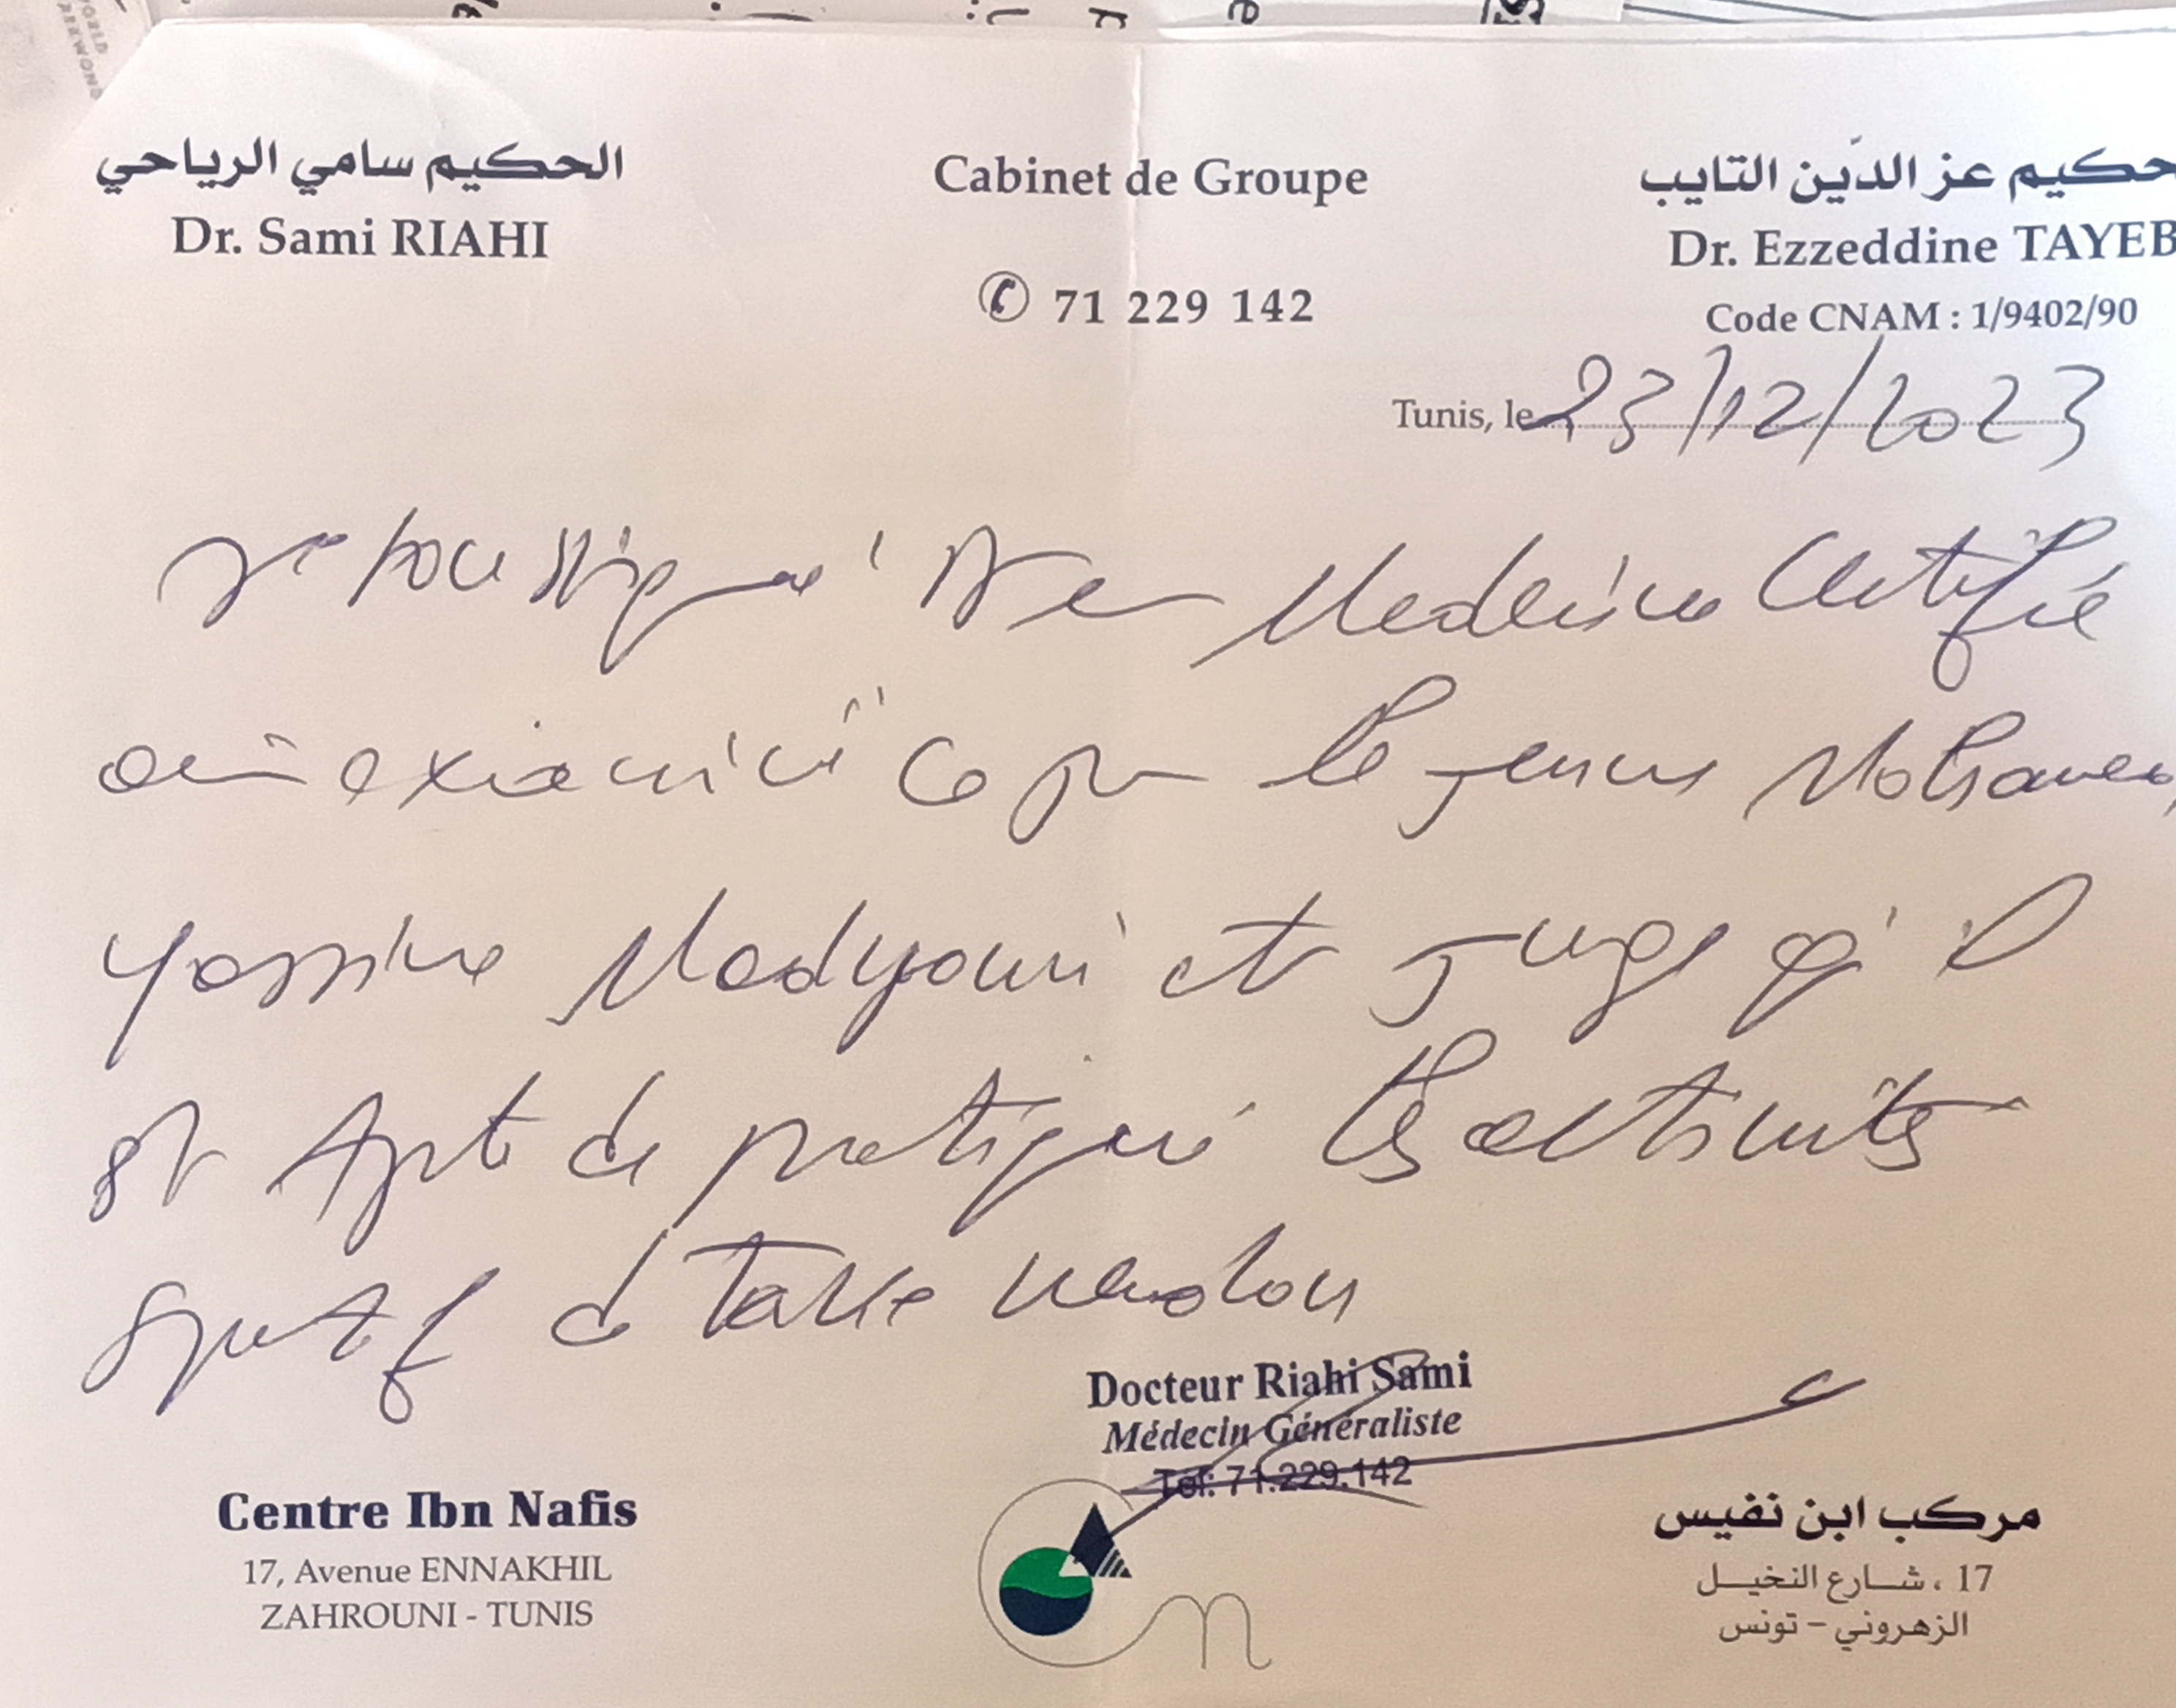 الحكيم سامي الرياحي
Dr. Sami RIAHI
Cabinet de Groupe
✆ 71 229 142
حكيم عز الدّين التايب
Dr. Ezzeddine TAYEB
Code CNAM : 1/9402/90
Tunis, le 23/12/2023
Je soussigné Dr en Medecine Certifié
avoir examiné ce jour le jeune Mohamed
Yassine Madyouni et juge qu'il
est Apte de pratiqué les activités
sportif de Taekwendou
Docteur Riahi Sami
Médecin Généraliste
Tel: 71.229.142
Centre Ibn Nafis
17, Avenue ENNAKHIL
ZAHROUNI - TUNIS
مركب ابن نفيس
17 ، شارع النخيل
الزهروني - تونس